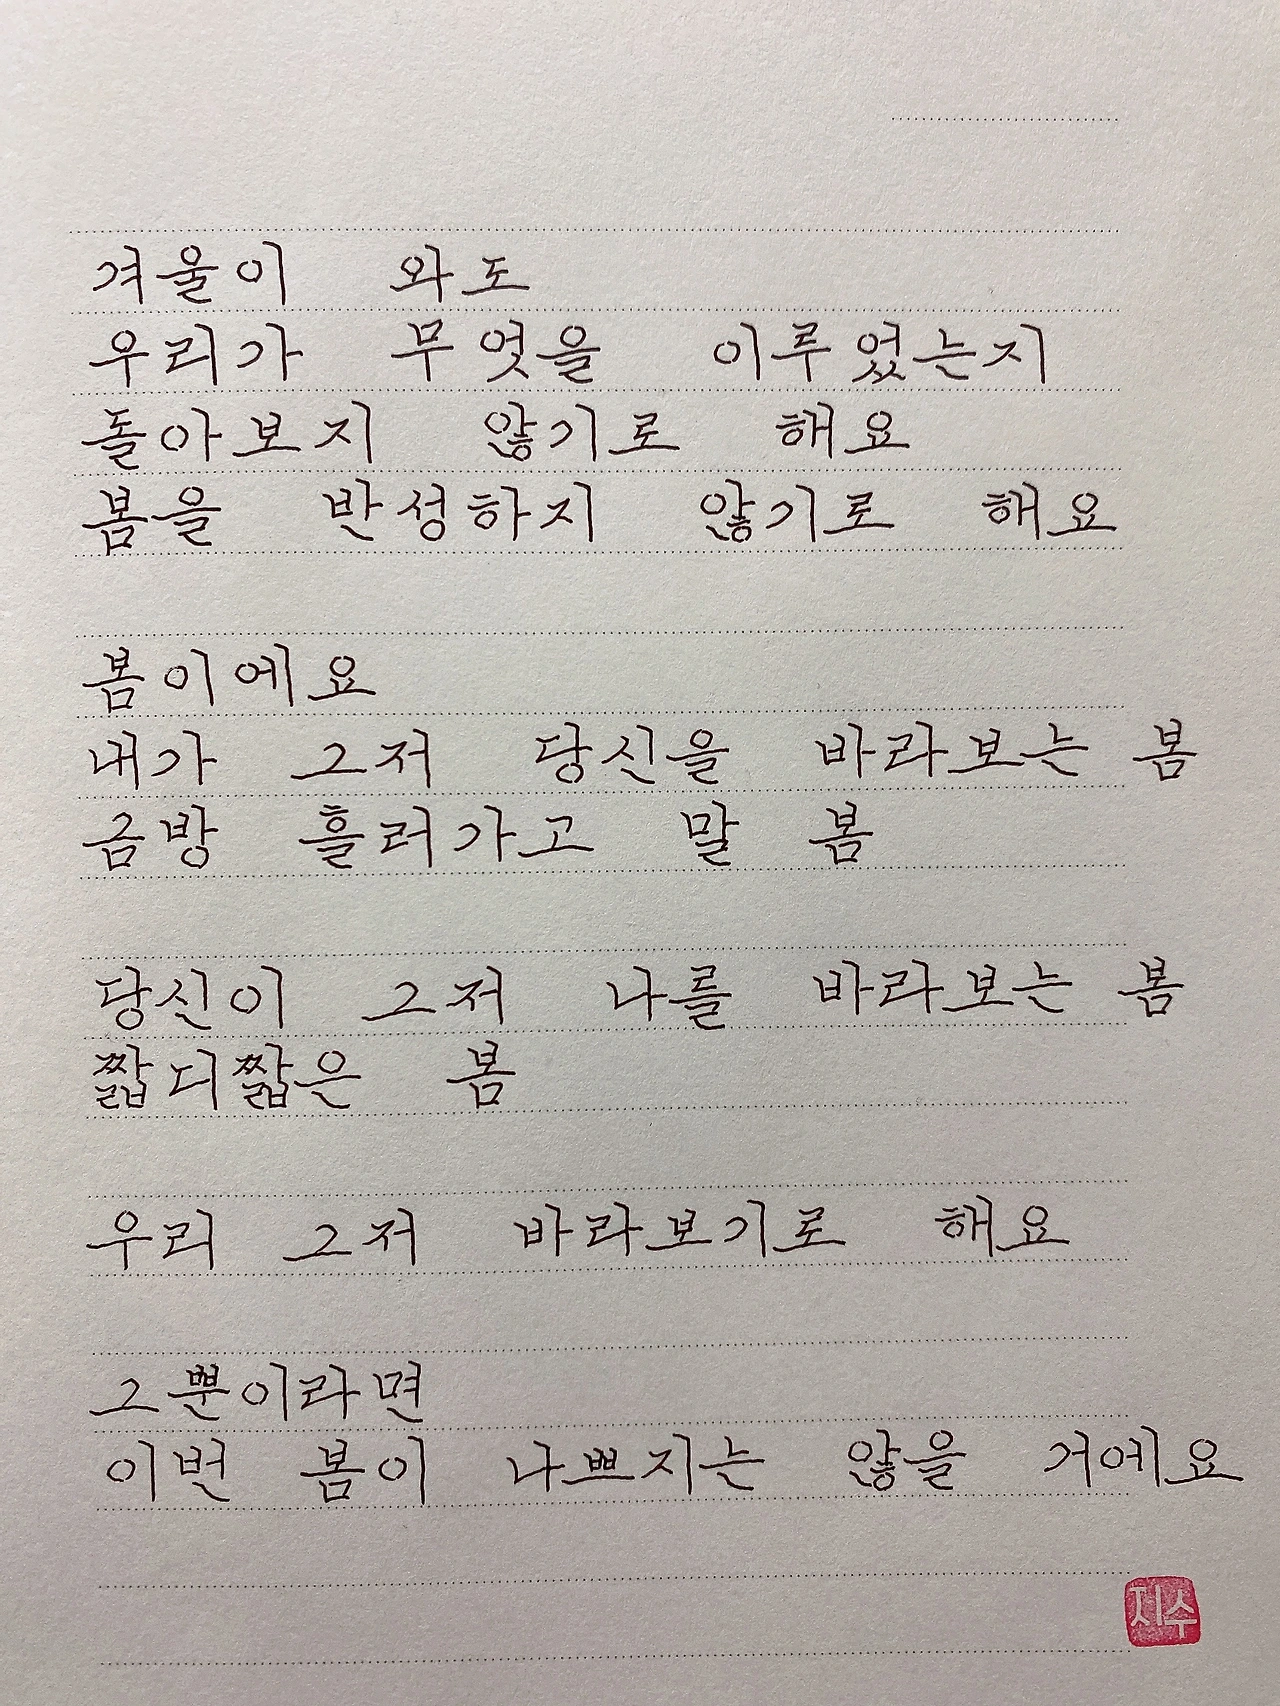 겨울이 와도
우리가 무엇을 이루었는지
돌아보지 않기로 해요
봄을 반성하지 않기로 해요
봄이에요
내가 그저 당신을 바라보는 봄
금방 흘러가고 말 봄
당신이 그저 나를 바라보는 봄
짧디짧은 봄
우리 그저 바라보기로 해요
그뿐이라면
이번 봄이 나쁘지는 않을 거예요
지수